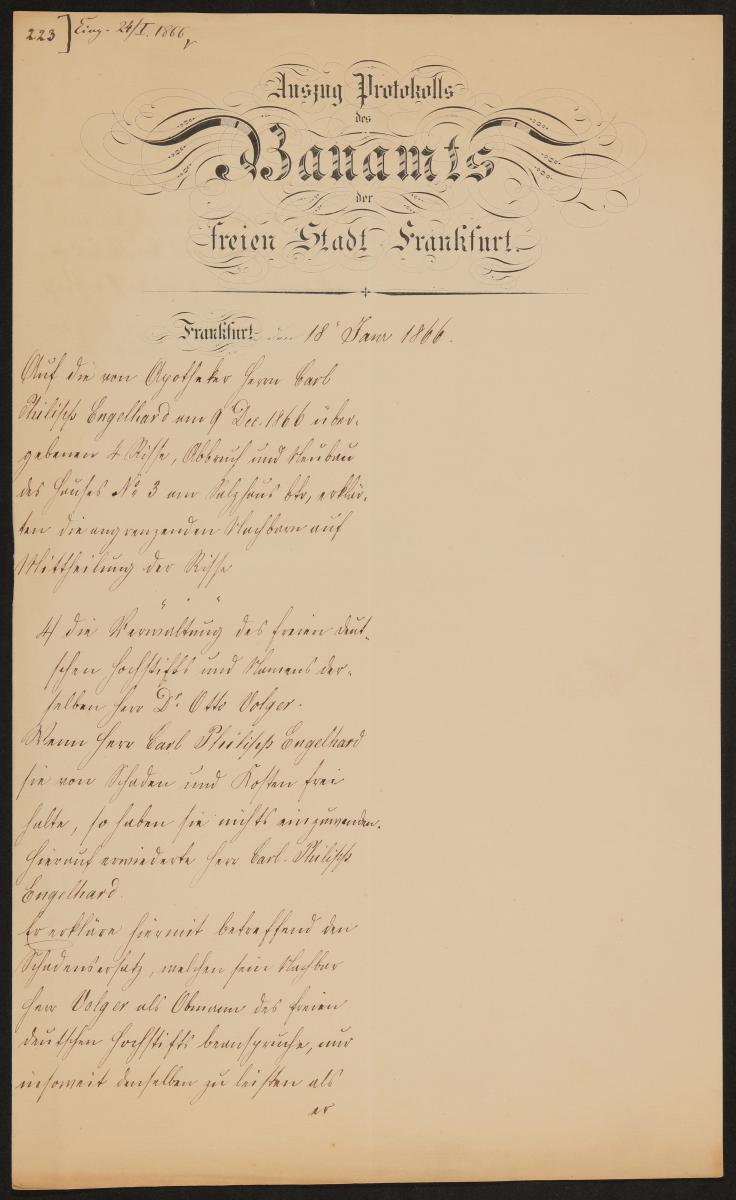 223] Eing. 24/I. 1866
Auszug Protokolls
des
Bauamts
der
freien Stadt Frankfurt.
Frankfurt den 18 Janr 1866.
Auf die von Apotheker Herrn Carl
Philipp Engelhard am 9 Dec. 1866 über-
gebenen 4 Risse, Abbruch und Neubau
des Hauses No 3 am Salzhaus btr, erklär-
ten die angrenzenden Nachbarn auf
Mittheilung der Risse
" " "
4) die Verwaltung des freien deut-
schen Hochstifts und Namens der-
selben Herr Dr. Otto Volger.
Wenn Herr Carl Philipp Engelhard
sie von Schaden und Kosten frei
halte, so haben sie nichts einzuwenden.
Hierauf erwiederte Herr Carl Philipp
Engelhard.
Er erkläre hiermit betreffend den
Schadensersatz, welchen sein Nachbar
Herr Volger als Obmann des freien
deutschen Hochstifts beanspruche, nur
insoweit denselben zu leisten als
er